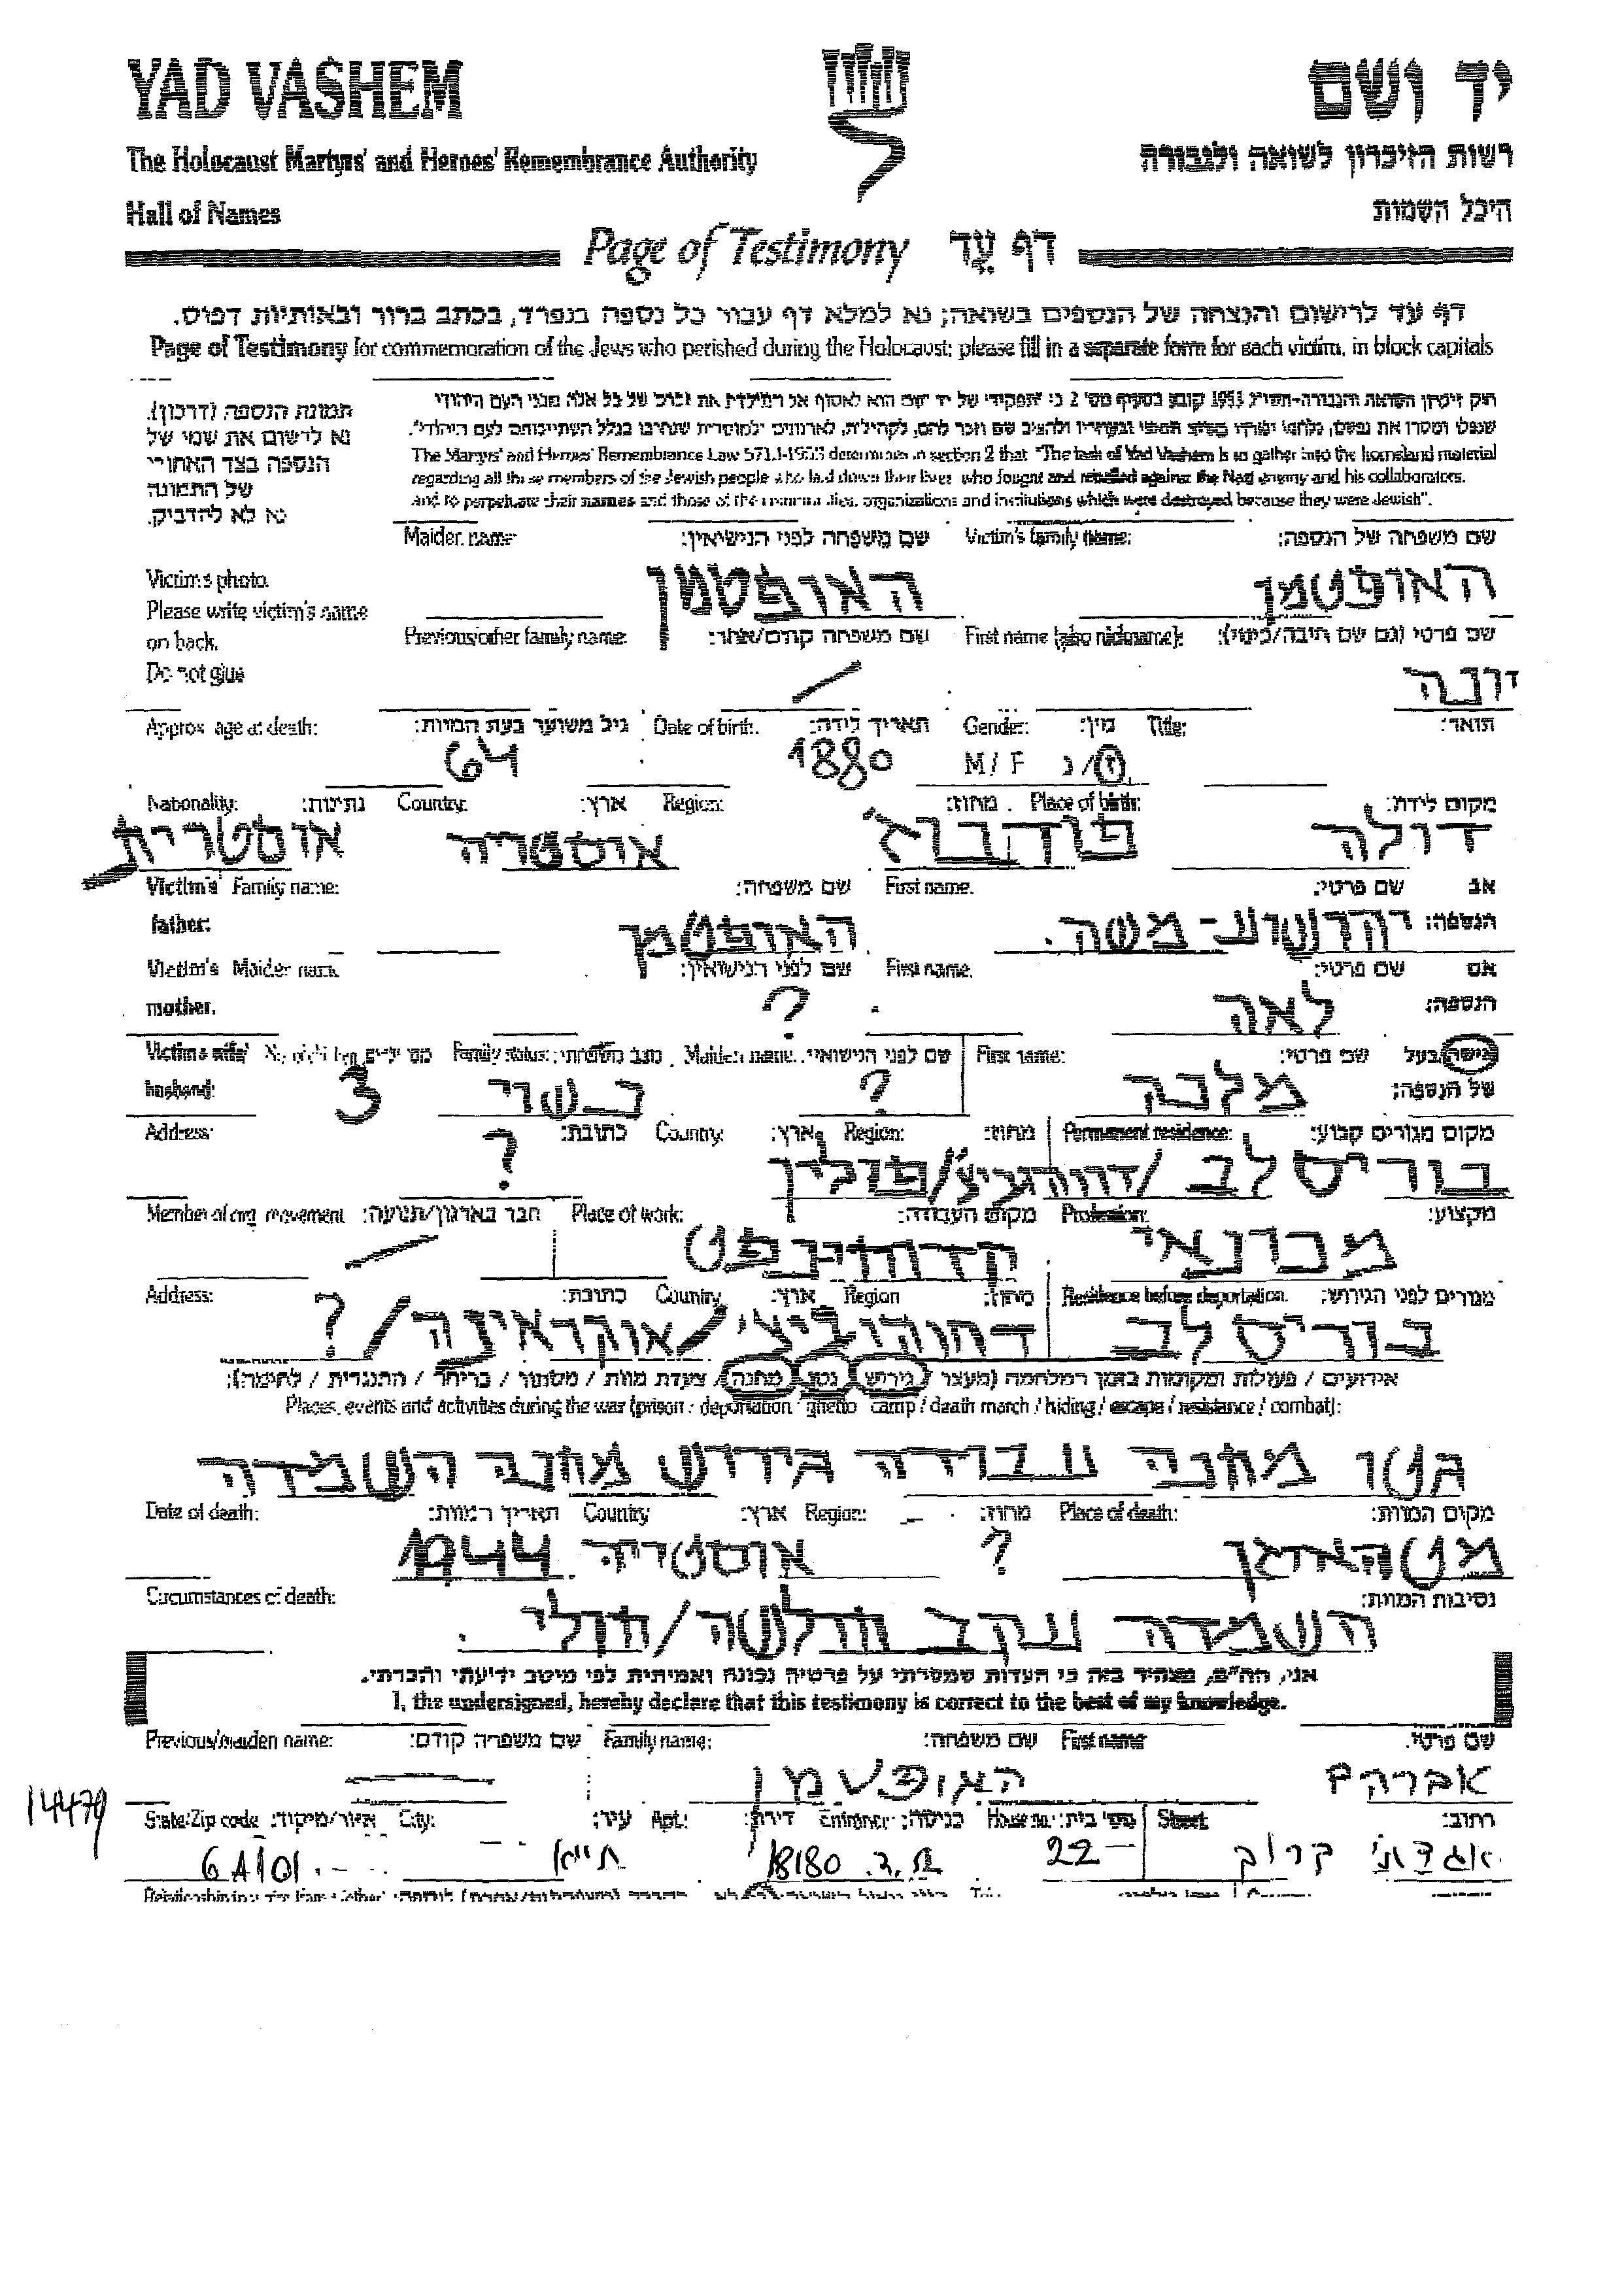 YAD VASHEM יד ושם
The Holocaust Martyrs' and Heroes' Remembrance Authority רשות הזיכרון לשואה ולגבורה
Hall of Names היכל השמות
Page of Testimony דף עד
דף עד לרישום והנצחה של הנספים בשואה; נא למלא דף עבור כל נספה בנפרד, בכתב ברור ובאותיות דפוס.
Page of Testimony for commemoration of the Jews who perished during the Holocaust; please fill in a separate form for each victim, in block capitals
תמונת הנספה (דרכון).
נא לרשום את שמו של
הנספה בצד האחורי
של התמונה
נא לא להדביק.
Victim's photo
Please write victim's name
on back.
Do not glue
The Martyrs' and Heroes' Remembrance Law 5713-1953 determines in section 2 that "The task of Yad Vashem is to gather into the homeland material
regarding all those members of the Jewish people who laid down their lives, who fought and rebelled against the Nazi enemy and his collaborators,
and to perpetuate their names and those of the communities, organizations and institutions which were destroyed because they were Jewish".
שם משפחה של הנספה: Victim's family name: שם משפחה לפני הנישואין: Maiden name
האופטמן האופטמן
שם פרטי (גם שם חיבה/כינוי): First name (also nickname): שם משפחה קודם/אחר: Previous/other family name:
יונה /
תואר: Title: מין: Gender: תאריך לידה: Date of birth: גיל משוער בעת המוות: Approx age at death:
ז/נ M / F 1880 64
מקום לידה: Place of birth: מחוז: Region: ארץ: Country: נתינות: Nationality:
דולה אוסטריה אוסטרית
אב שם פרטי: First name. שם משפחה: Family name: Victim's
הנספה: יהושוע - משה. האופטמן father:
אם שם פרטי: First name. שם לפני הנישואין: Maiden name Victim's
הנספה: לאה ? mother.
אישה/בעל שם פרטי: First name: שם לפני הנישואין: Maiden name: מצב משפחתי: Family status: מס' ילדים Victim's wife/
של הנספה: מלכה ? נשוי 3 husband:
מקום מגורים קבוע: Permanent residence: מחוז: Region: ארץ: Country: כתובת: Address:
בוריסלב /דרוהוביצ'/פולין ?
מקצוע: Profession: מקום העבודה: Place of work: חבר בארגון/תנועה: Member of org. movement
מכונאי /
מגורים לפני הגירוש: Residence before deportation. מחוז: Region ארץ: Country כתובת: Address:
בוריסלב דרוהוביצ'/אוקראינה/?
אירועים / פעולות ומקומות בזמן המלחמה (מעצר / גירוש / גטו / מחנה / צעדת מוות / מסתור / בריחה / התנגדות / לחימה):
Places, events and activities during the war (prison / deportation / ghetto / camp / death march / hiding / escape / resistance / combat):
גטו מחנה עבודה גירוש מחנה השמדה
מקום המוות: Place of death: מחוז: Region: ארץ: Country תאריך המוות: Date of death:
מטהאוזן ? אוסטריה 1944
נסיבות המוות: Circumstances of death:
השמדה עקב חולשה/חולי.
אני, הח"מ, מצהיר בזה כי העדות שמסרתי על פרטיה נכונה ואמיתית לפי מיטב ידיעתי והכרתי.
I, the undersigned, hereby declare that this testimony is correct to the best of my knowledge.
שם פרטי. First name שם משפחה: Family name: שם משפחה קודם: Previous/maiden name:
אברהם האופטמן
14479
רחוב: Street מס' בית: House no. כניסה: Entrance דירה: Apt: עיר: City: אזור/מיקוד: State/Zip code
22 ת.ד. 18180 61101